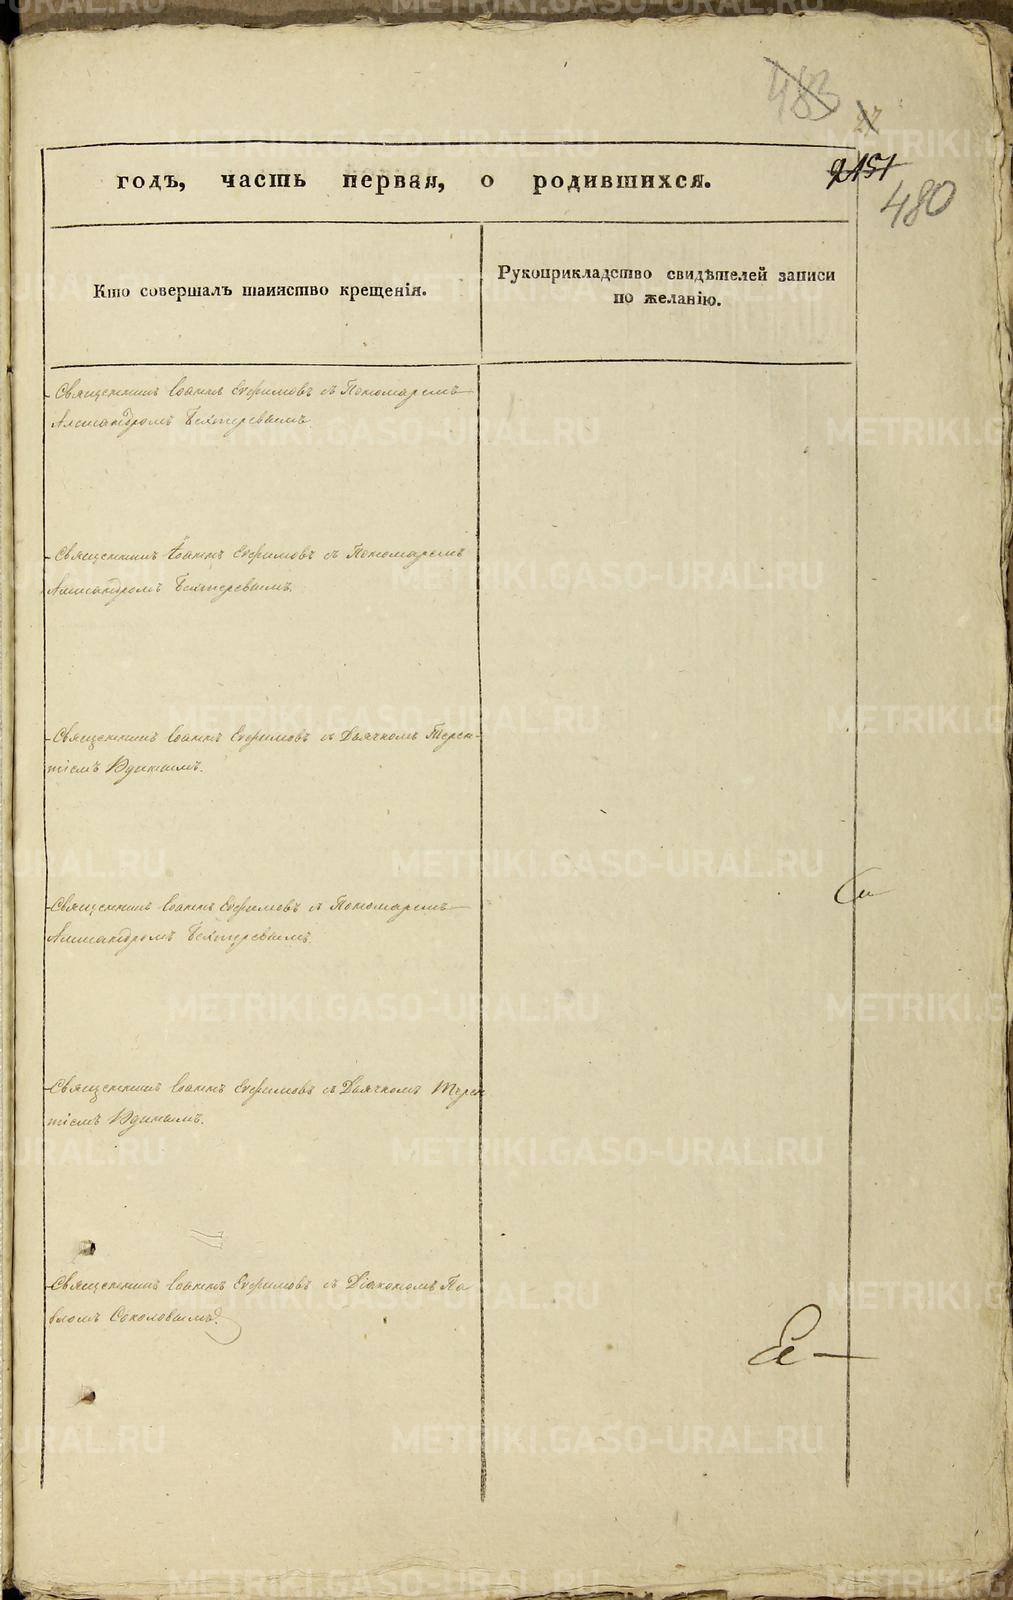 483
27
2151
480
годъ, часть первая, о родившихся.
Кто совершалъ таинство крещенія.
Рукоприкладство свидѣтелей записи
по желанію.
Священникъ Іоаннъ Ефимовъ съ Пономаремъ
Александромъ Бехтеревымъ.
Священникъ Іоаннъ Ефимовъ съ Пономаремъ
Александромъ Бехтеревымъ.
Священникъ Іоаннъ Ефимовъ съ Дьячкомъ Терен-
тіемъ
Священникъ Іоаннъ Ефимовъ съ Пономаремъ
Александромъ Бехтеревымъ.
Священникъ Іоаннъ Ефимовъ съ Дьячкомъ Терен
тіемъ
Священникъ Іоаннъ Ефимовъ съ Діакономъ Па
вломъ Соколовымъ.
METRIKI.GASO-URAL.RU